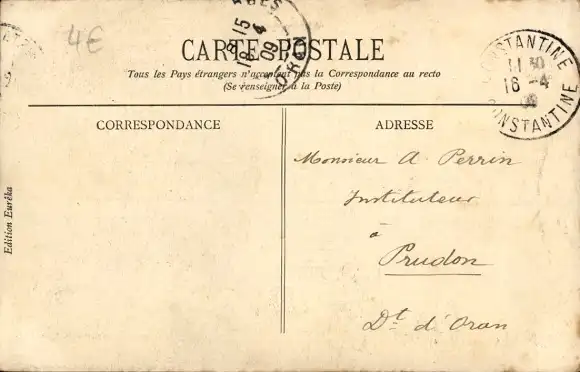 4€
8 15
18 4
09
ORAN
CARTE POSTALE
Tous les Pays étrangers n'acceptent pas la Correspondance au recto
(Se renseigner à la Poste)
CONSTANTINE
11 30
16 -4
09
CONSTANTINE
CORRESPONDANCE
ADRESSE
Monsieur A. Perrin
Instituteur
à
Prudon
Dt d'Oran
Edition Euréka